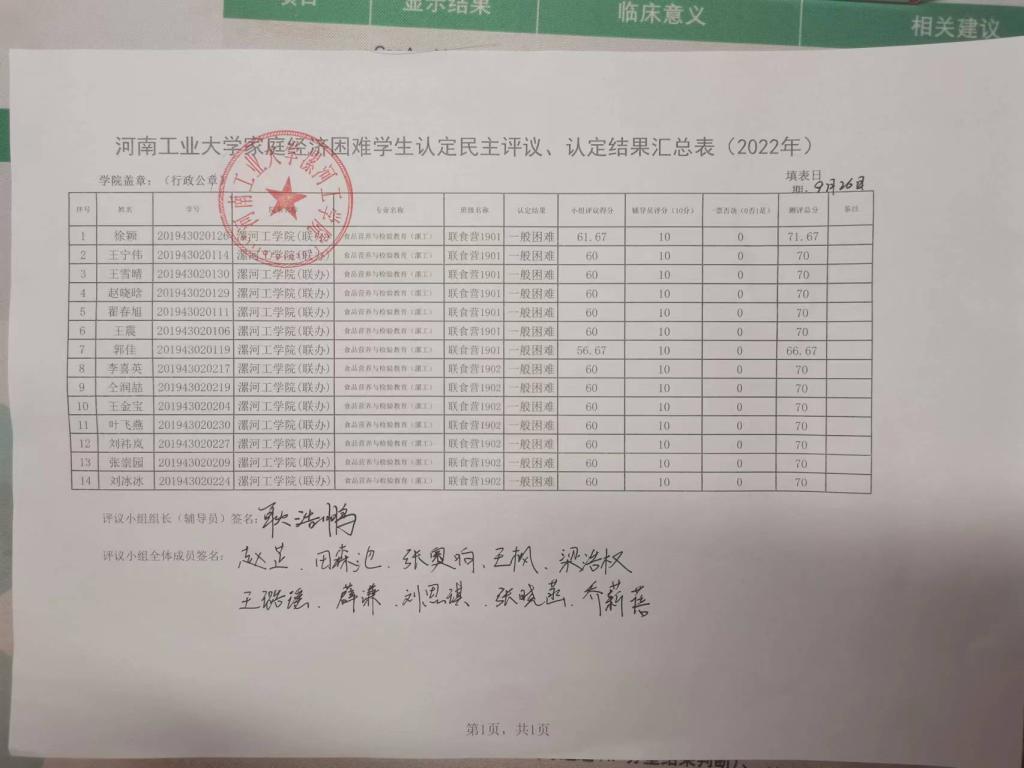 项目 显示结果 临床意义 相关建议
河南工业大学家庭经济困难学生认定民主评议、认定结果汇总表（2022年）
学院盖章：（行政公章） 填表日
期：9月26日
河南工业大学漯河工学院
序号 姓名 学号 专业名称 班级名称 认定结果 小组评议得分 辅导员评分（10分） 一票否决（0否1是） 测评总分 备注
1 徐颖 201943020126 漯河工学院(联办) 食品营养与检验教育（漯工） 联食营1901 一般困难 61.67 10 0 71.67
2 王宁伟 201943020114 漯河工学院(联办) 食品营养与检验教育（漯工） 联食营1901 一般困难 60 10 0 70
3 王雪晴 201943020130 漯河工学院(联办) 食品营养与检验教育（漯工） 联食营1901 一般困难 60 10 0 70
4 赵晓晗 201943020129 漯河工学院(联办) 食品营养与检验教育（漯工） 联食营1901 一般困难 60 10 0 70
5 翟春旭 201943020111 漯河工学院(联办) 食品营养与检验教育（漯工） 联食营1901 一般困难 60 10 0 70
6 王震 201943020106 漯河工学院(联办) 食品营养与检验教育（漯工） 联食营1901 一般困难 60 10 0 70
7 郭佳 201943020119 漯河工学院(联办) 食品营养与检验教育（漯工） 联食营1901 一般困难 56.67 10 0 66.67
8 李喜英 201943020217 漯河工学院(联办) 食品营养与检验教育（漯工） 联食营1902 一般困难 60 10 0 70
9 仝润喆 201943020219 漯河工学院(联办) 食品营养与检验教育（漯工） 联食营1902 一般困难 60 10 0 70
10 王金宝 201943020204 漯河工学院(联办) 食品营养与检验教育（漯工） 联食营1902 一般困难 60 10 0 70
11 叶飞燕 201943020230 漯河工学院(联办) 食品营养与检验教育（漯工） 联食营1902 一般困难 60 10 0 70
12 刘祎岚 201943020227 漯河工学院(联办) 食品营养与检验教育（漯工） 联食营1902 一般困难 60 10 0 70
13 张崇园 201943020209 漯河工学院(联办) 食品营养与检验教育（漯工） 联食营1902 一般困难 60 10 0 70
14 刘冰冰 201943020224 漯河工学院(联办) 食品营养与检验教育（漯工） 联食营1902 一般困难 60 10 0 70
评议小组组长（辅导员）签名：耿浩鹏
评议小组全体成员签名： 田森池、王枫、梁浩权
王璐瑶、薛谦、刘思琪、张晓菡、乔薪蓓
第1页，共1页